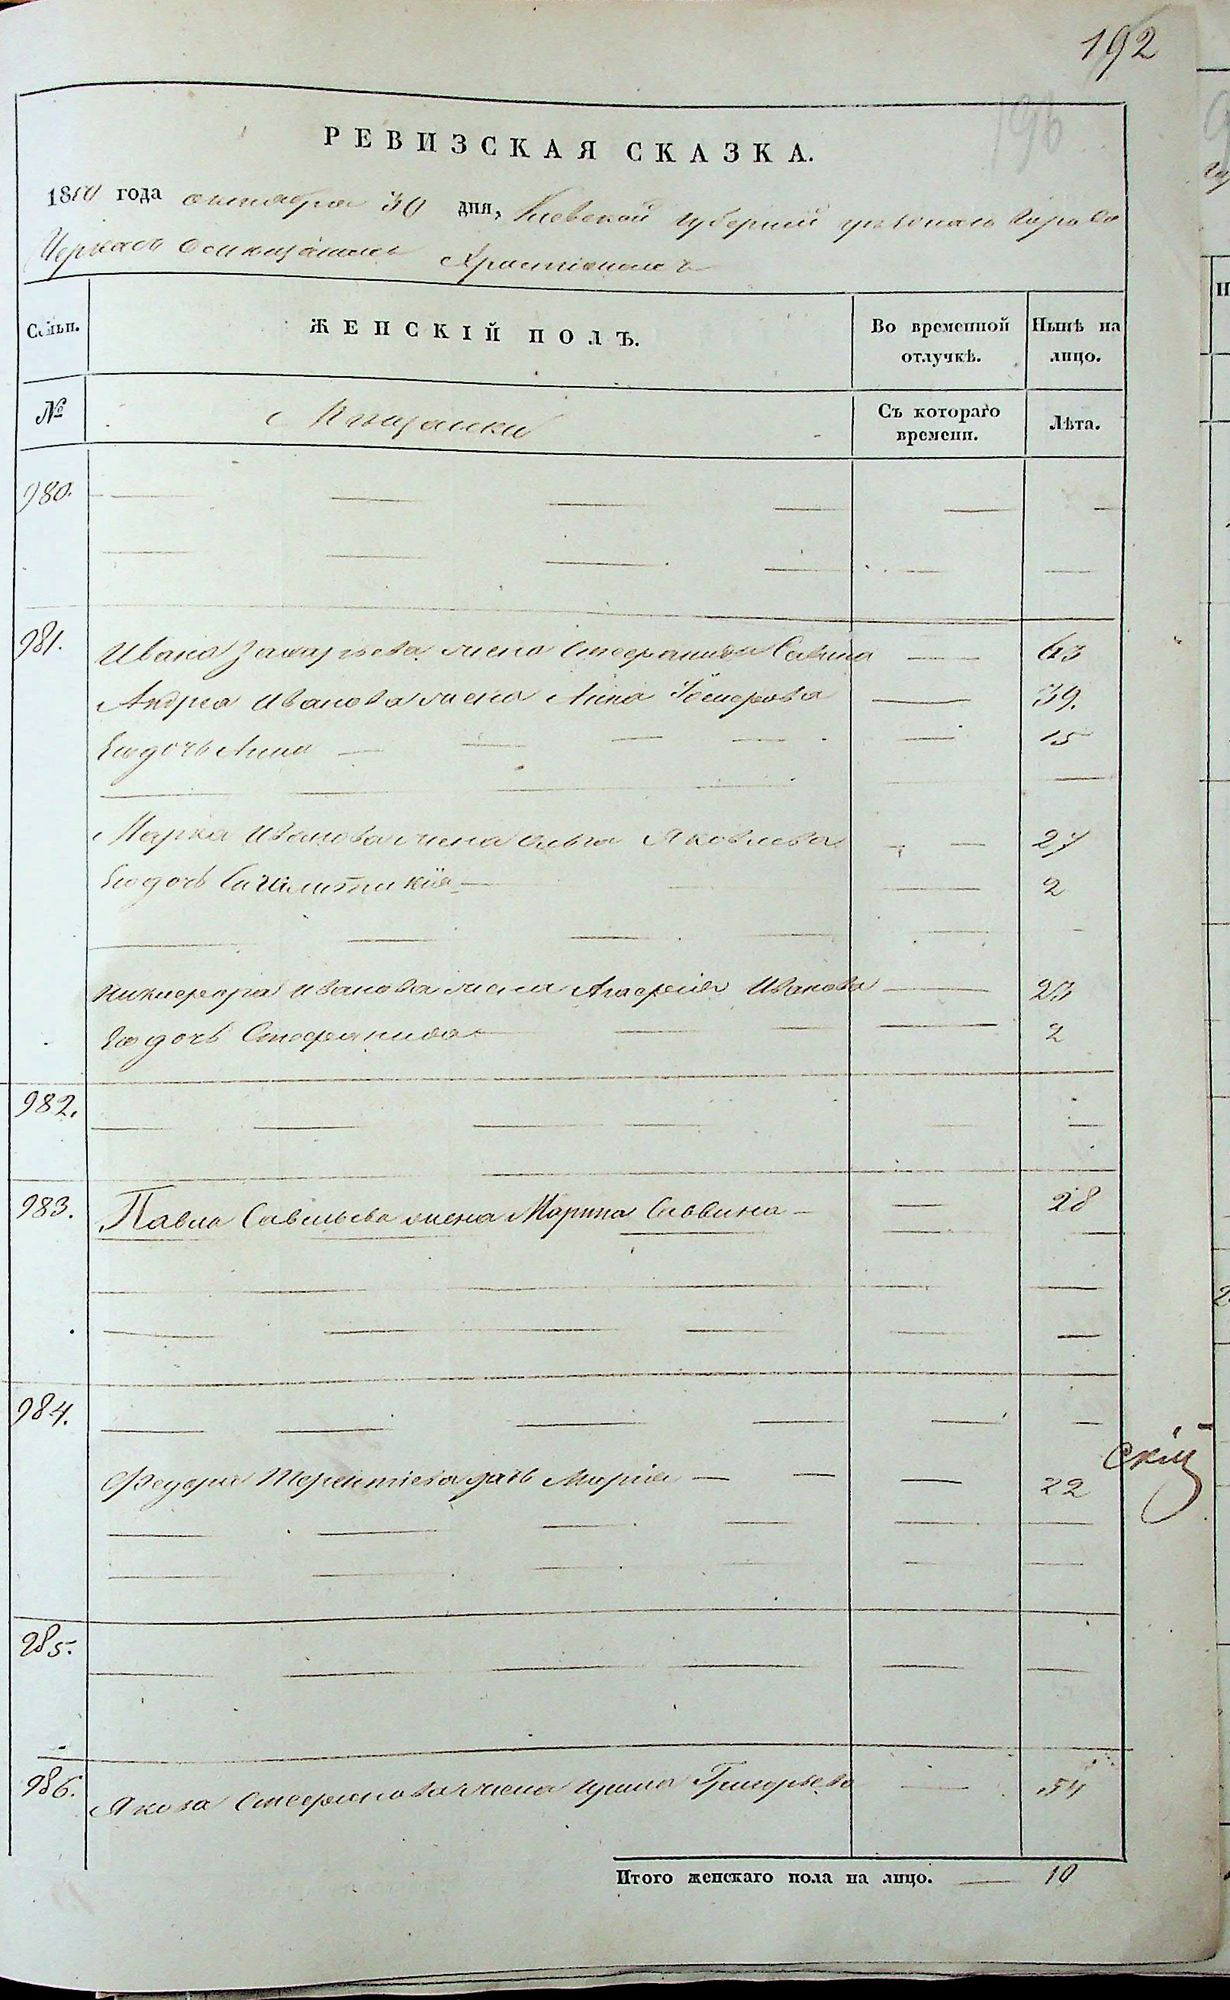 192
196
РЕВИЗСКАЯ СКАЗКА.
1850 года октября 30 дня, Киевской губернии уезднаго города
Черкасъ о мещанахъ христіанахъ
Семьи.
ЖЕНСКІЙ ПОЛЪ.
Во временной отлучкѣ.
Нынѣ на лицо.
№
Мещански
Съ котораго времени.
Лѣта.
980.
981. Ивана Захарьева жена Стефанида Савина 63
Андрея Иванова жена Анна 39.
Ея дочь Анна 15
Марка Иванова жена Ольга Яковлева 27
Ея дочь 2
Никифора Иванова жена Агафия Иванова 23
Ея дочь Стефанида 2
982.
983. Павла Савельева жена Марина Саввина 28
984.
скій
Федора Терентіева дочь Марія 22
985.
986. Якова Стефанова жена Ирина Григорьева 54
Итого женскаго пола на лицо. 10